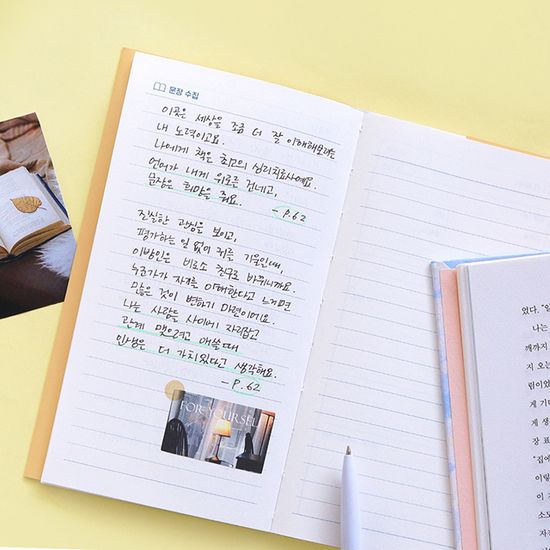 문장 수집
이곳은 세상을 조금 더 잘 이해해보려는
내 노력이고요.
나에게 책은 최고의 심리치료사예요.
언어가 내게 위로를 건네고,
문장은 희망을 줘요.
- p.62
진실한 관심을 보이고,
평가하는 일 없이 귀를 기울일때,
이방인은 비로소 친구로 바뀌니까요.
누군가가 자기를 이해한다고 느끼면
많은 것이 변하기 마련이에요.
나는 사람들 사이에 자리잡고
관계 맺으려고 애쓸 때
인생은 더 가치있다고 생각해요.
- p.62
FOR YOURSELF
었다. "일
나는
깨까지
지 오는
림이었
게 기
게 생
장 표
"집에
이렇
이 지
소도